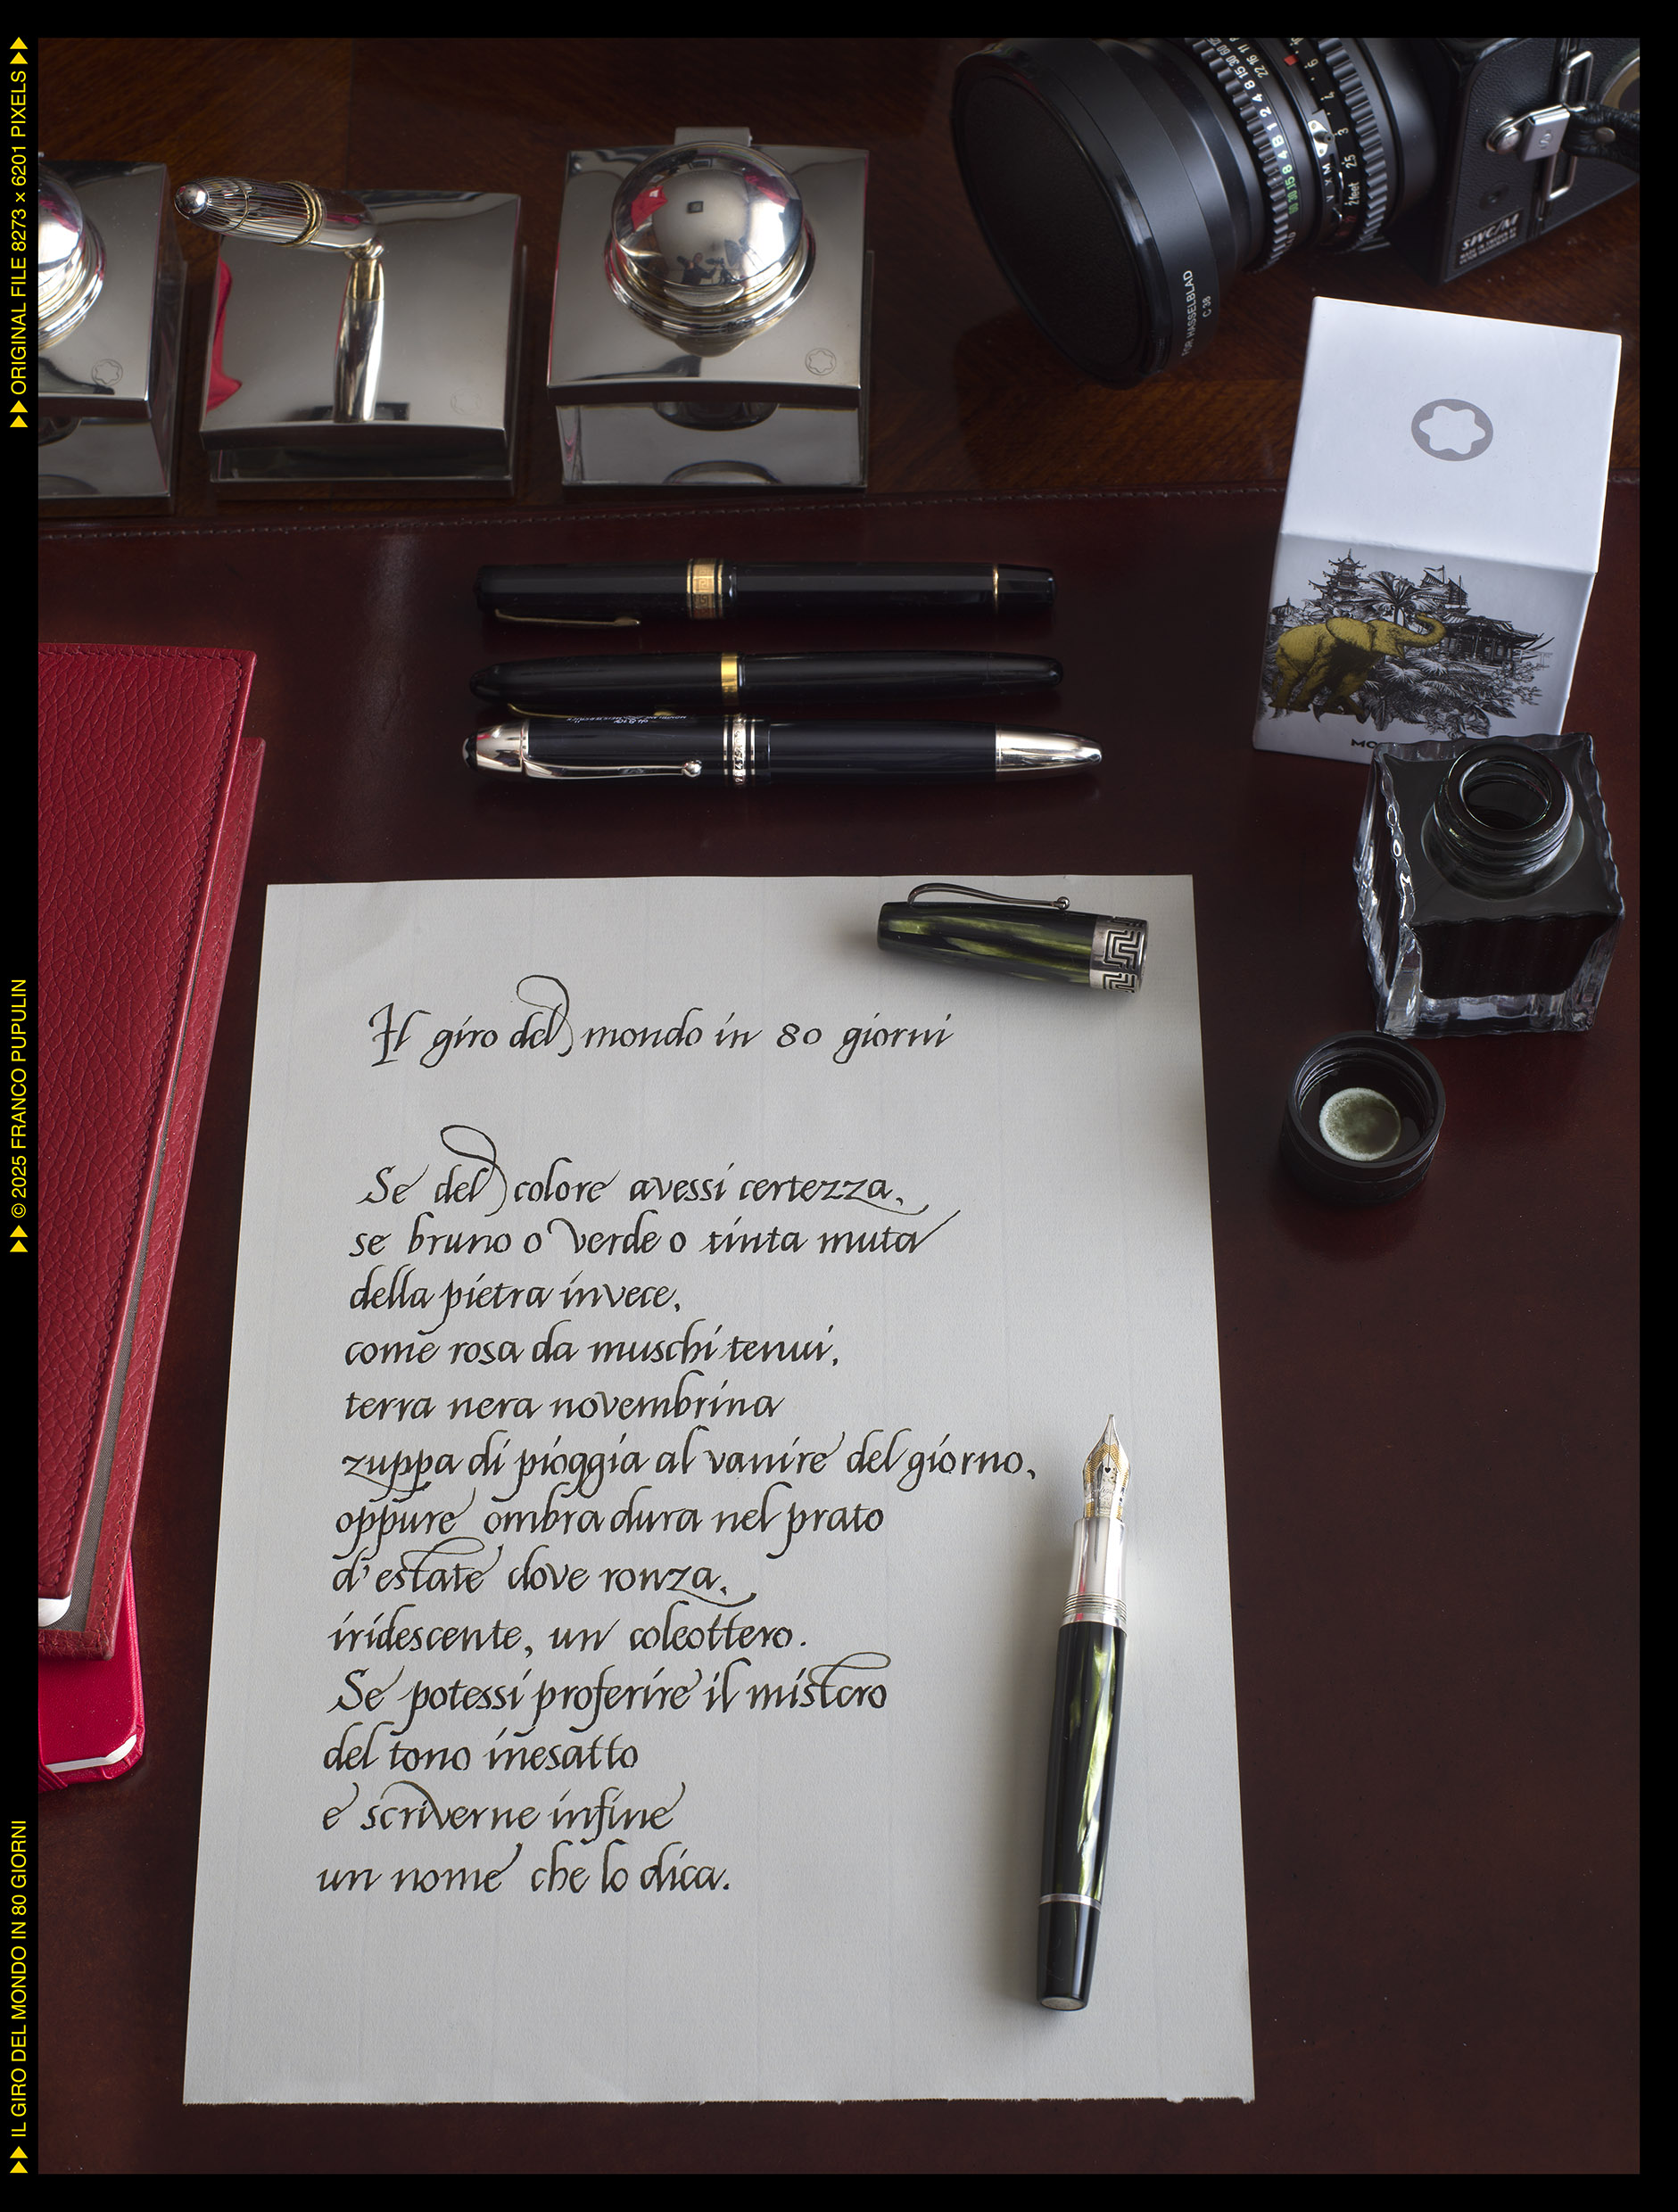 ORIGINAL FILE 8273 × 6201 PIXELS
© 2025 FRANCO PUPULIN
IL GIRO DEL MONDO IN 80 GIORNI
FOR HASSELBLAD
C 38
SWC/M
Il giro del mondo in 80 giorni
Se del colore avessi certezza,
se bruno o verde o tinta muta
della pietra invece,
come rosa da muschi tenui,
terra nera novembrina
zuppa di pioggia al vanire del giorno,
oppure ombra dura nel prato
d'estate dove ronza,
iridescente, un coleottero.
Se potessi proferire il mistero
del tono inesatto
e scriverne infine
un nome che lo dica.